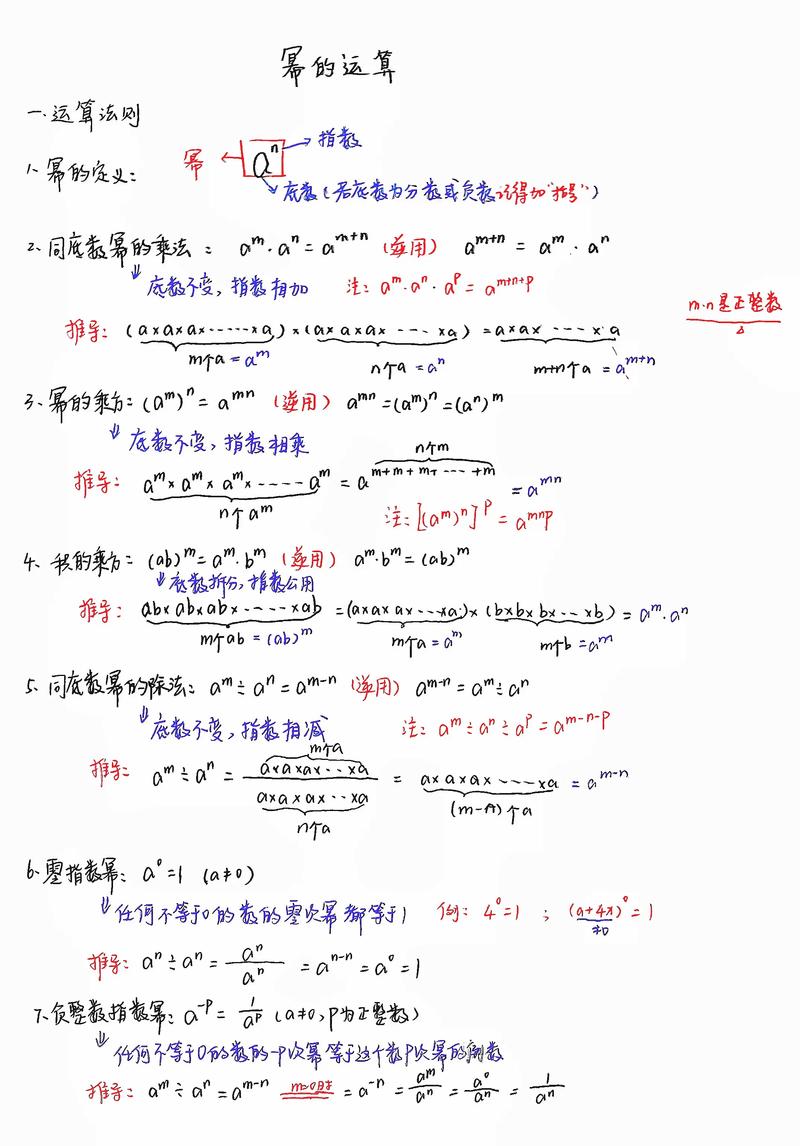 幂的运算
一、运算法则
1、幂的定义：幂 aⁿ 指数
底数（若底数为分数或负数记得加“括号”）
2、同底数幂的乘法：aᵐ·aⁿ=aᵐ⁺ⁿ（逆用）aᵐ⁺ⁿ=aᵐ·aⁿ
底数不变，指数相加 注：aᵐ·aⁿ·aᵖ=aᵐ⁺ⁿ⁺ᵖ
m·n是正整数
推导：(a×a×a×·····×a)×(a×a×a×····×a)=a×a×····×a
m个a=aᵐ n个a=aⁿ m+n个a=aᵐ⁺ⁿ
3、幂的乘方：(aᵐ)ⁿ=aᵐⁿ（逆用）aᵐⁿ=(aᵐ)ⁿ=(aⁿ)ᵐ
底数不变，指数相乘
n个m
推导：aᵐ×aᵐ×aᵐ×·····aᵐ=a^(m+m+m+····+m)=aᵐⁿ
n个aᵐ 注：[(aᵐ)ⁿ]ᵖ=aᵐⁿᵖ
4、积的乘方：(ab)ᵐ=aᵐ·bᵐ（逆用）aᵐ·bᵐ=(ab)ᵐ
底数拆分，指数公用
推导：ab×ab×ab×·····×ab=(a×a×a×···×a)×(b×b×b×··×b)=aᵐ·aⁿ
m个ab=(ab)ᵐ m个a=aᵐ m个b=aᵐ
5、同底数幂的除法：aᵐ÷aⁿ=aᵐ⁻ⁿ（逆用）aᵐ⁻ⁿ=aᵐ÷aⁿ
底数不变，指数相减 注：aᵐ÷aⁿ÷aᵖ=aᵐ⁻ⁿ⁻ᵖ
m个a
推导：aᵐ÷aⁿ=(a×a×a×··×a)/(a×a×a×··×a)=a×a×a×····×a=aᵐ⁻ⁿ
n个a (m-n)个a
6、零指数幂：a⁰=1（a≠0）
任何不等于0的数的零次幂都等于1 例：4⁰=1；(a+4x)⁰=1
≠0
推导：aⁿ÷aⁿ=aⁿ/aⁿ=aⁿ⁻ⁿ=a⁰=1
7、负整数指数幂：a⁻ᵖ=1/aᵖ（a≠0，p为正整数）
任何不等于0的数的-p次幂等于这个数p次幂的倒数
推导：aᵐ÷aⁿ=aᵐ⁻ⁿ m=0时 =a⁻ⁿ=aᵐ/aⁿ=a⁰/aⁿ=1/aⁿ